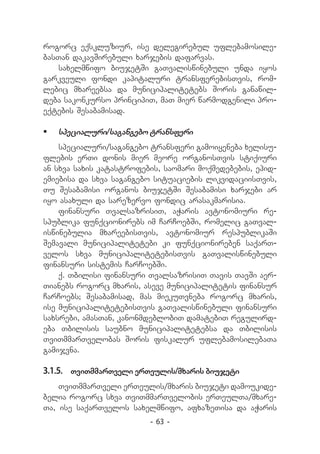 როგორც ექსკლუზიურ, ისე დელეგირებულ უფლებამოსილე-
ბასთან დაკავშირებული ხარჯების დაფარვას.
სახელმწიფო ბიუჯეტში გათვალისწინებული უნდა იყოს
გარკვეული ფონდი კაპიტალური ტრანსფერებისთვის, რომ-
ლებიც მხარეებსა და მუნიციპალიტეტებს შორის განაწილ-
დება საკონკურსო პრინციპით, მათ მიერ წარმოდგენილი პრო-
ექტების შესაბამისად.
• სპეციალური/საგანგებო ტრანსფერი
სპეციალური/საგანგებო ტრანსფერი გამოიყენება ხელისუ-
ფლების ერთი დონის მიერ მეორე ორგანოსთვის სტიქიური
ან სხვა სახის კატასტროფების, საომარი მოქმედებების, ეპიდ-
ემიებისა და სხვა საგანგებო სიტუაციების ლიკვიდაციისთვის,
თუ შესაბამისი ორგანოს ბიუჯეტში შესაბამისი ხარჯები არ
იყო ასახული და სარეზერვო ფონდიც არასაკმარისია.
ფინანსური თვალსაზრისით, აჭარის ავტონომიური რე-
სპუბლიკა ფუნქციონირებს იმ ჩარჩოებში, რომელიც გათვალ-
ისწინებულია მხარეებისთვის, ავტონომიურ რესპუბლიკაში
შემავალი მუნიციპალიტეტები კი ფუნქციონირებენ საქართ-
ველოს სხვა მუნიციპალიტეტებისთვის გათვალისწინებული
ფინანსური სისტემის ჩარჩოებში.
ქ. თბილისი ფინანსური თვალსაზრისით თავის თავში აერ-
თიანებს როგორც მხარის, ასევე მუნიციპალიტეტის ფინანსურ
ჩარჩოებს; შესაბამისად, მას მიეკუთვნება როგორც მხარის,
ისე მუნიციპალიტეტებისთვის გათვალისწინებული ფინანსური
სახსრები, ამასთან, კანონმდებლობით დამატებით რეგულირდ-
ება თბილისის საუბნო მუნიციპალიტეტებსა და თბილისის
თვითმმართველობას შორის ფისკალურ უფლებამოსილებათა
გამიჯვნა.
3.1.5. თვითმმართველი ერთეულის/მხარის ბიუჯეტი
თვითმმართველი ერთეულის/მხარის ბიუჯეტი დამოუკიდე-
ბელია როგორც სხვა თვითმმართველობის ერთეულთა/მხარე-
თა, ისე საქართველოს სახელმწიფო, აფხაზეთისა და აჭარის
- 63 -